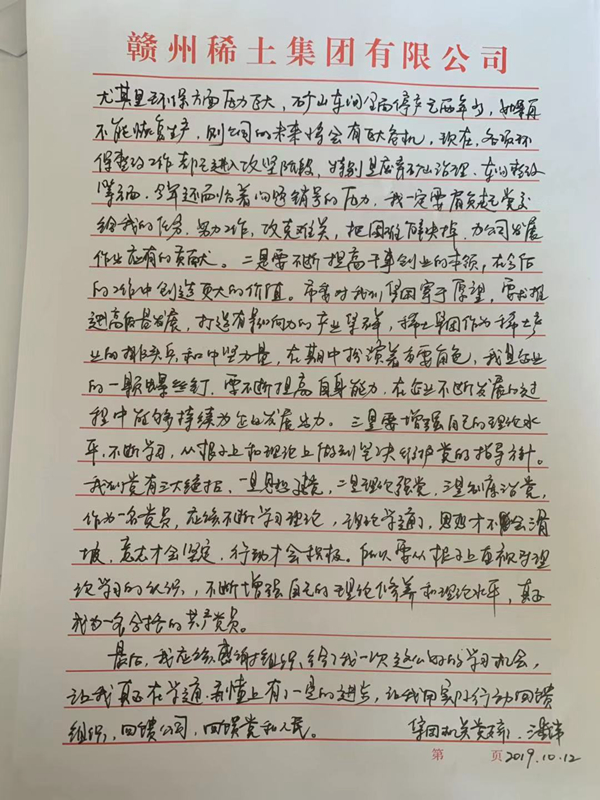 赣州稀土集团有限公司
尤其是环保方面压力巨大，矿山车间全面停产已两年多，如果再
不能恢复生产，则公司的未来将会有巨大危机，现在，各项环
保整改工作都已进入攻坚阶段，特别是废弃矿山治理、车间整改
等方面，今年还面临着问题销号的压力，我一定要肩负起党交
给我的任务，努力工作，攻克难关，把困难解决掉，为公司发展
作出应有的贡献。二是要不断提高干事创业的本领，在今后
的工作中创造更大的价值。市委对我们集团寄予厚望，要求推
进高质量发展，打造有影响力的产业集群，稀土集团作为稀土产
业的排头兵和中坚力量，在其中扮演着重要角色，我是企业
的一颗螺丝钉，要不断提高自身能力，在企业不断发展的过
程中能够持续为企业发展出力。三是要增强自己的理论水
平，不断学习，从根子上和理论上做到坚决维护党的指导方针。
我们党有三大绝招，一是思想建党，二是理论强党，三是制度治党，
作为一名党员，应该不断学习理论，理论学通了，思想才不会滑
坡，意志才会坚定，行动才会积极。所以要从根子上重视对理
论学习的认识，不断增强自己的理论修养和理论水平，真正
成为一名合格的共产党员。
最后，我应该感谢组织，给了我一次这么好的学习机会，
让我真正在学通弄懂上有了一定的进步，让我用实际行动回馈
组织，回馈公司，回馈党和人民。
集团机关党支部
第 页 2019.10.12